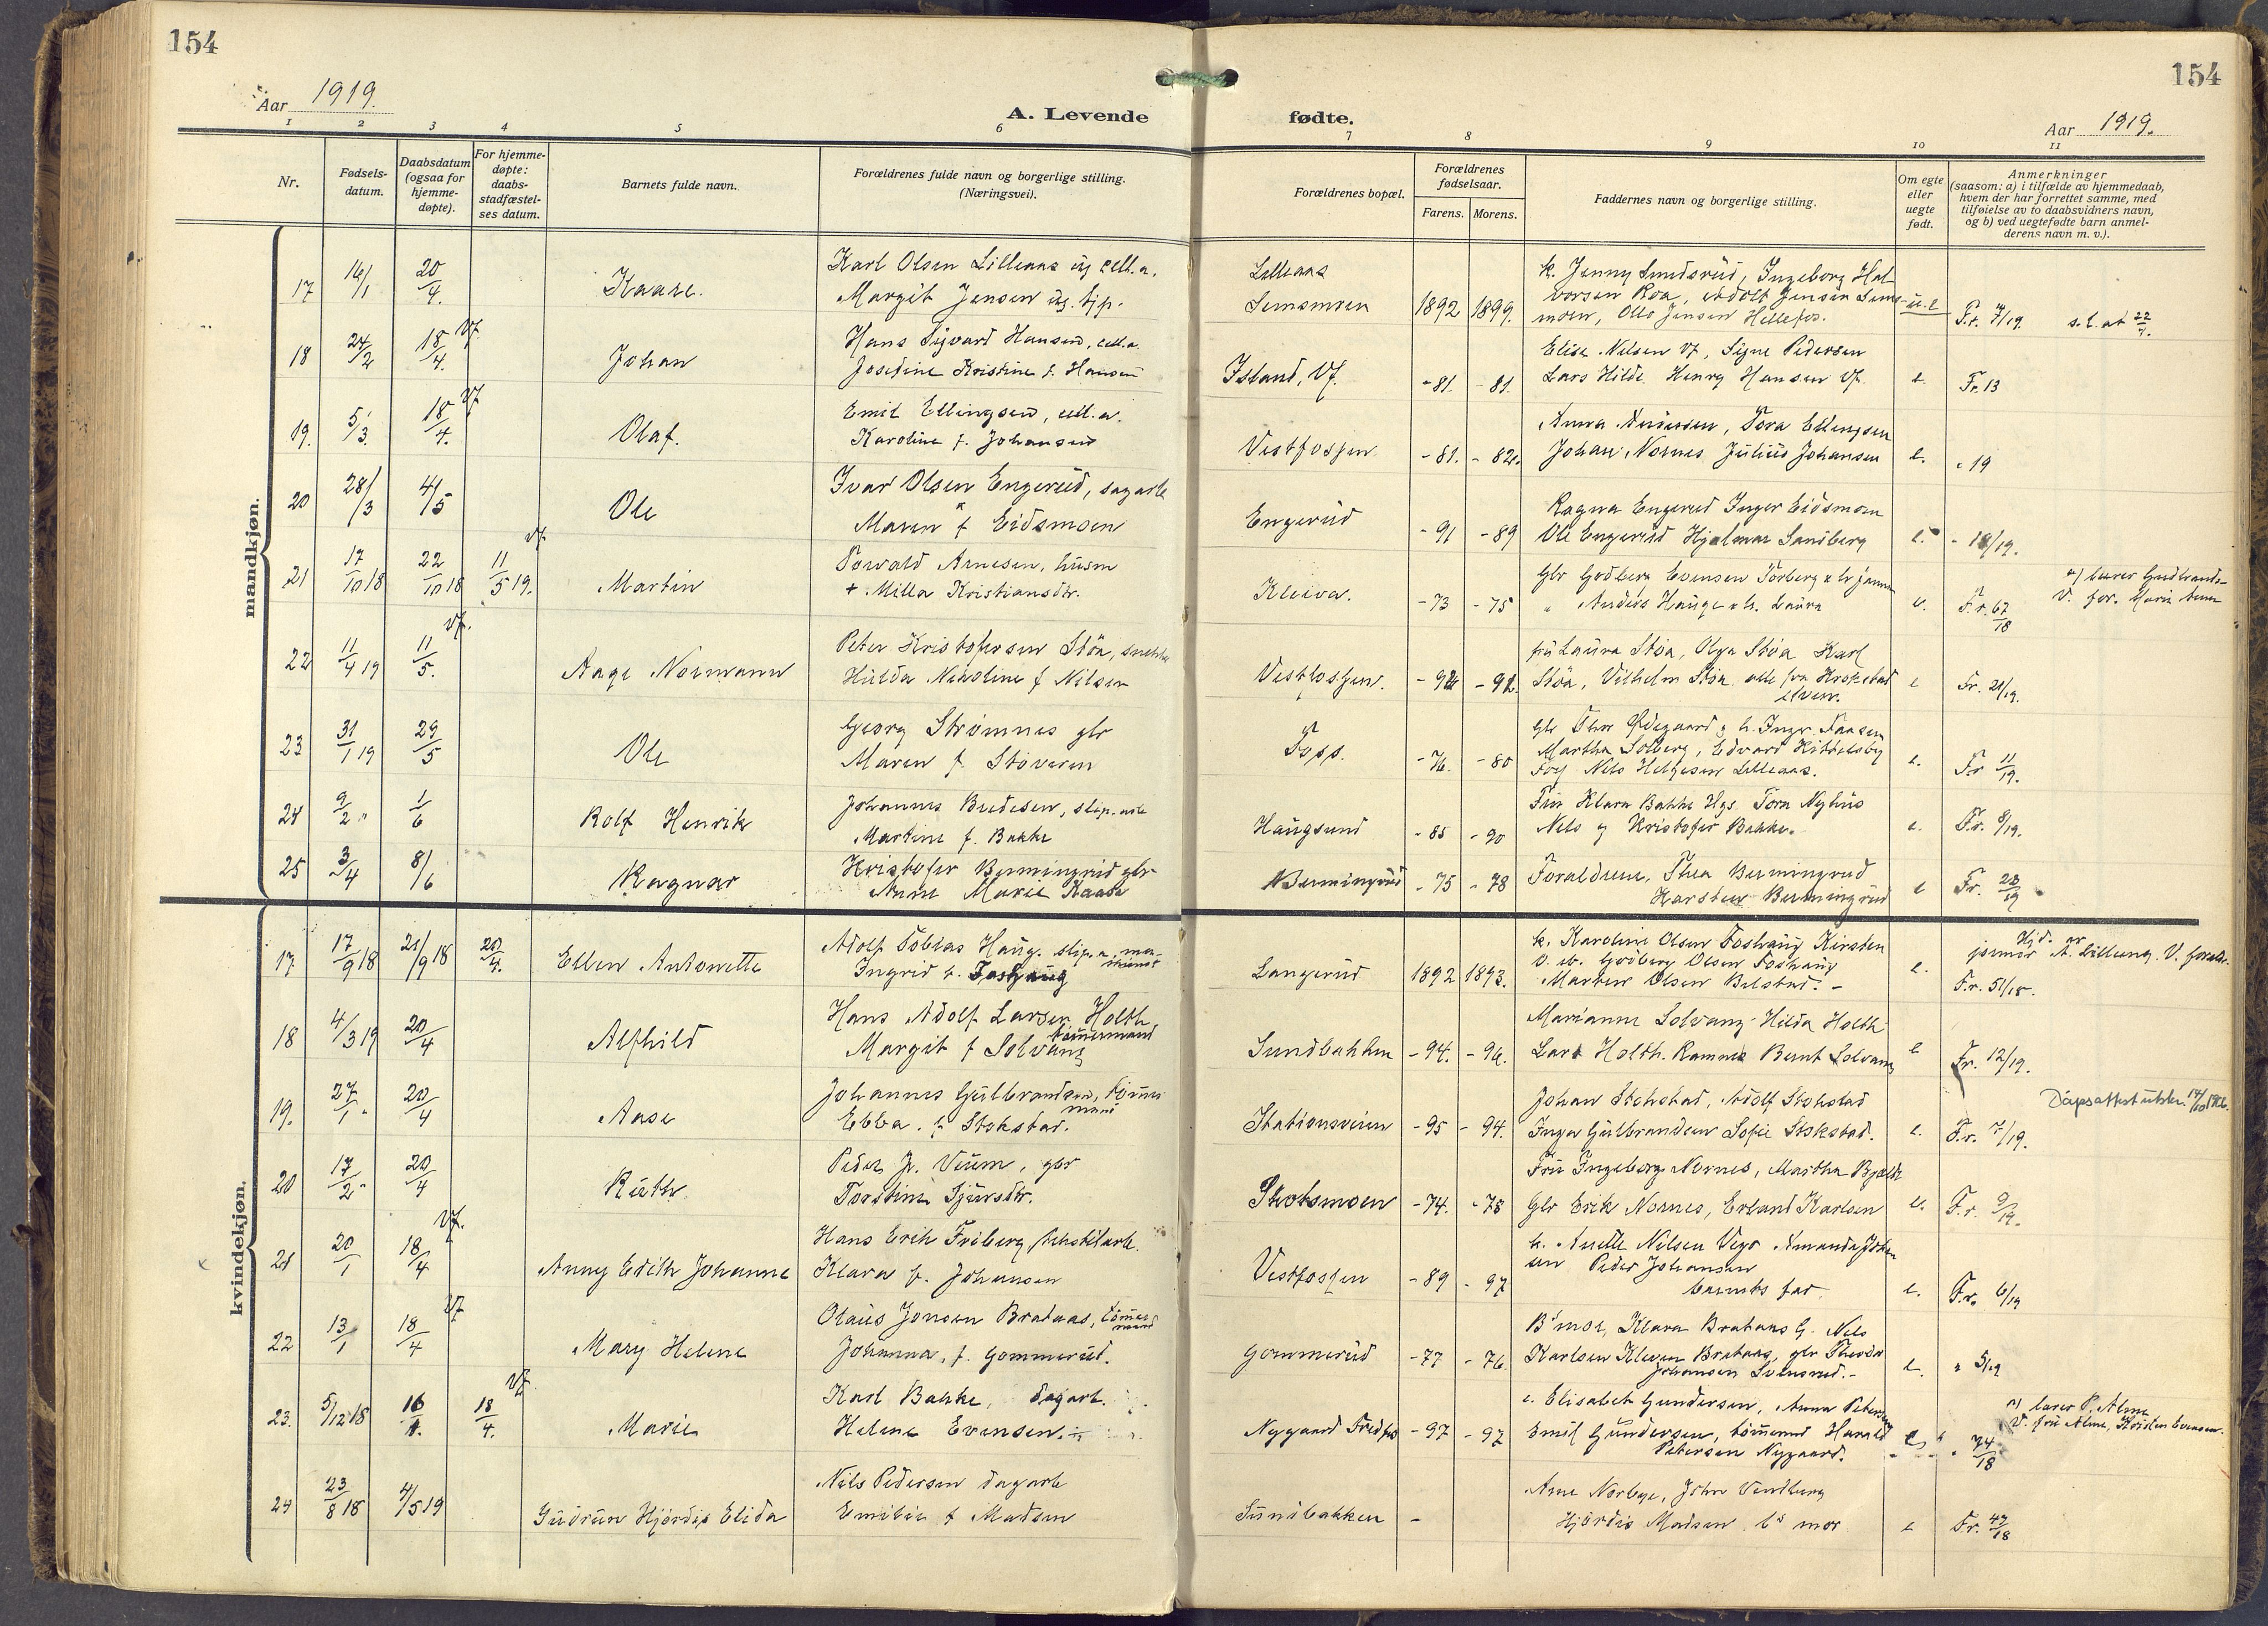 154
154
Aar 1919.
A. Levende
fødte.
Aar 1919.
1 2 3 4 5 6 7 8 9 10 11
Nr.
Fødsels-
datum.
Daabsdatum
(ogsaa for
hjemme-
døpte).
For hjemme-
døpte:
daabs-
stadfæstel-
ses datum.
Barnets fulde navn.
Forældrenes fulde navn og borgerlige stilling.
(Næringsvei).
Forældrenes bopæl.
Forældrenes
fødselsaar.
Farens. Morens.
Faddernes navn og borgerlige stilling.
Om egte
eller
uegte
født.
Anmerkninger
(saasom: a) i tilfælde av hjemmedaab,
hvem der har forrettet samme, med
tilføielse av to daabsvidners navn,
og b) ved uegtefødte barn anmel-
derens navn m. v.).
mandkjøn.
17 16/1 20/4. Kaare.
Karl Olsen Lilleaas ug cell.a.
Margit Jensen ug. tjp.
Lilleaas
Semsmoen 1892 1899.
k. Jenny Sundsrud, Ingeborg Hal-
vorsen Roa, Adolf Jensen Sems-
moen, Olto Jensen Hellefos.
u.e F.r. 7/19.
18 24/2 18/4. Vf. Johan
Hans Sigvard Hansen, cell.a.
Josefine Kristine f. Hansen
Istand, Vf. -81. -81.
Elise Nilsen Vf, Signe Pedersen
Lars Hilde Henry Hansen Vf.
e. Fr. 13
19. 5/3. 18/4. Vf Olaf.
Emil Ellingsen, cell.a.
Karoline f. Johansen
Vestfossen -81. -82.
Anna Andersen, Tora Ellingsen
Johan Nornes Julius Johansen
e. " 19
20 28/3 4/5 Ole
Ivar Olsen Engerud, sagarb
Maren f Eidsmoen
Engerud -91 -89
Ragna Engerud Inger Eidsmoen
Ole Engerud Hjalmar Sandberg
e. - 18/19.
21 17/10 18 22/10 18 11/5 19. Vf. Martin
Torvald Arnesen, husm
+ Milla Kristiansdtr.
Kleiva. -73 -75
Gbr Godberg Evensen Torberg
" Anders Hauge & h. Laura
e. F.r. 67/18
22 11/4 19 11/5. Vf. Aage Normann
Peter Kristofersen Stöa,
Hulda Nikoline f Nilsen
Vestfossen. -92 -92
fru Laura Stöa, Olga Stöa Karl
Stöa, Vilhelm Stöa alle fra Krokstad
elven.
e Fr. 21/19.
23 31/1 19 29/5 Ole
Georg Strømnes gbr
Maren f. Støveren
Foss. -76. -80
Gbr Thor Ødegaard & h. Inger Taasen
Martha Solberg, Edvard Kittelsby
Foss Nels Helgesen Lilleaas.
e. Fr 11/19.
24 9/2 " 1/6 Rolf Henrik
Johannes Bredesen, slip.arb
Martine f. Bakke
Haugsund -85 -90
Fru Klara Bakke Hgs. Tora Nyhus
Nels og Kristofer Bakke.
e. F.r. 8/19.
25 3/4 8/6 Ragnar
Kristofer Bermingrud gbr
Anne Marie Kaasa
Bermingrud -75 -78
Forældrene, Thea Bermingrud
Karsten Bermingrud
e Fr. 28/19
kvindekjøn.
17 17/9 18 21/9 18 20/4. Ellen Antonette
Adolf Tobias Haug. slip.a. ma-
skinist
Ingrid f. Foshaug
Langerud 1892 1893.
k. Karoline Olsen Foshaug Kirsten
Godberg Olsen Foshaug
Marten Olsen Belstad. -
e. Hjd. av
jormor A. Lillung. V. foreldr.
F.r. 51/18.
18 4/3 19 20/4 Alfhild
Hans Adolf Larsen Holth
tømmermand
Margit f Solvang
Sundbakken -94. -96.
Marianne Solvang Hilda Holth
Lars Holth. Ramnes Bernt Solvang
e Fr. 12/19.
19. 27/1 " 20/4 Aase
Johannes Gulbrandsen, tömmer
mand
Ebba. f Stokstad.
Stationsveien -95 -94.
Johan Stokstad, Adolf Stokstad
Inga Gulbrandsen Sofie Stokstad.
e. F.r. 7/19.
20 17/2 " 20/4 Ruth
Peder Jr. Veum, gbr
Torstine Sjursdtr.
Skotsmoen -74. -78
Fru Ingeborg Nornes, Martha Bjelde
Gbr Erik Nornes, Erland Karlsen
e. F.r. 9/19.
21 20/1 18/4 Vf. Anny Edith Johanne
Hans Erik Friberg
Klara f. Johansen
Vestfossen -89 -97
h. Anette Nilsen Vego Amanda Johan
sen Peder Johansen
barnets far
e. F.r. 6/19
22 13/1 18/4 Vf Mary Helene
Olaus Jonsen Brataas, tömmer
mand
Johanna, f. Gommerud.
Gommerud -77 -76.
B's mor, Klara Brataas G. Nels
Karlsen Kleven Brataas, gbr Theodor
Johansen Svensrud. -
e. " 5/19
23. 5/12 18 16/1. 18/4. Vf. Marie
Karl Bakke, dagarb.
Helene Evensen.
Nygaard Fredfos -97 -97
e. Elisabet Gundersen, Anna Petersen
Emil Gundersen, tömmerm Harald
Petersen Nygaard.
e. " 74/18
lærer P. Alme
V. fru Alme, Kristen Evensen.
24 23/8 18 4/5 19 Gudrun Hjørdis Elida
Nils Pedersen dagarb
Emilie f Madsen
Sundbakken -
Arne Norbye, John Vindberg
Hjørdis Madsen, b's mor
e Fr. 47/18